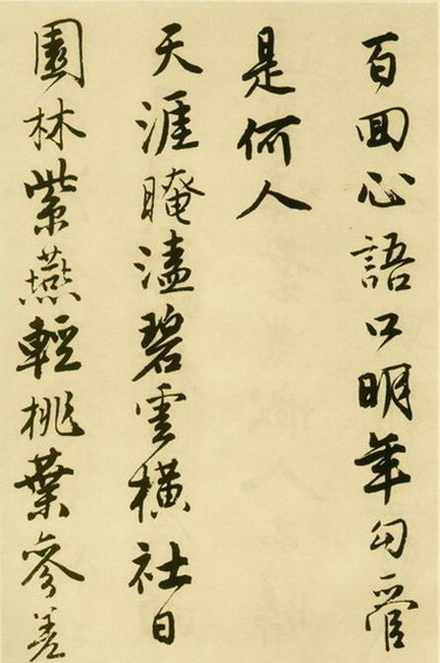 百囬心語口明年勾管
是何人
天涯晻溘碧雲橫社日
園林紫燕輕桃葉參差